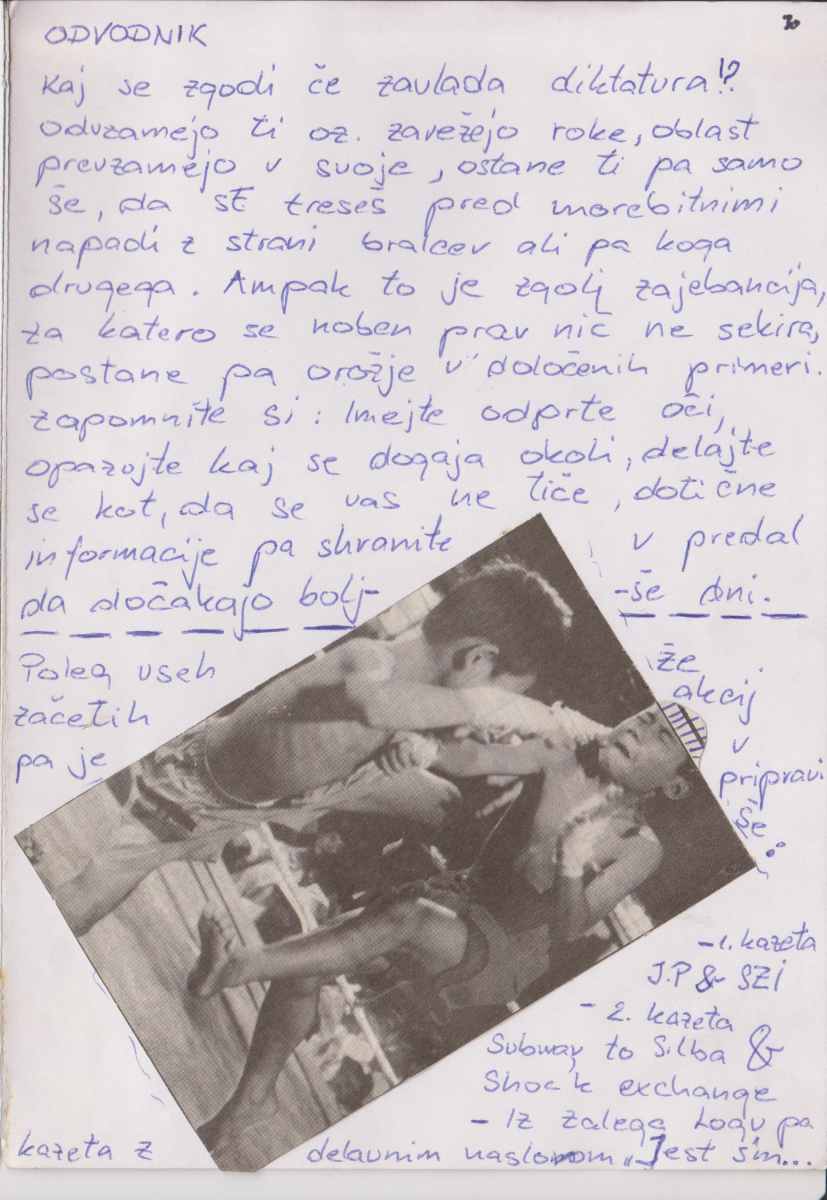 20
ODVODNIK
Kaj se zgodi če zavlada diktatura!?
Odvzamejo ti oz. zavežejo roke, oblast
prevzamejo v svoje, ostane ti pa samo
še, da se treseš pred morebitnimi
napadi z strani bralcev ali pa koga
drugega. Ampak to je zgolj zajebancija,
za katero se noben prav nič ne sekira,
postane pa orožje v določenih primeri.
Zapomnite si: Imejte odprte oči,
opazujte kaj se dogaja okoli, delajte
se kot, da se vas ne tiče, dotične
informacije pa shranite v predal
da dočakajo bolj- -še dni.
Poleg vseh že
začetih akcij
pa je v
pripravi
še:
-1. kazeta
J.P & SZI
- 2. kazeta
Subway to Silba &
Shock exchange
- Iz zalega Logu pa
kazeta z delavnim naslovom „Jest sm...